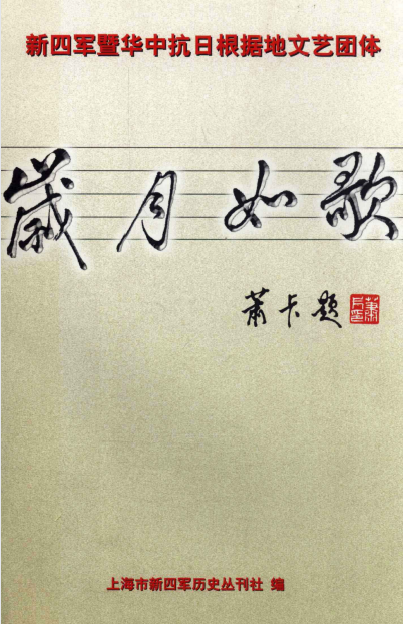 新四军暨华中抗日根据地文艺团体
歲月如歌
萧卡题
上海市新四军历史丛刊社 编